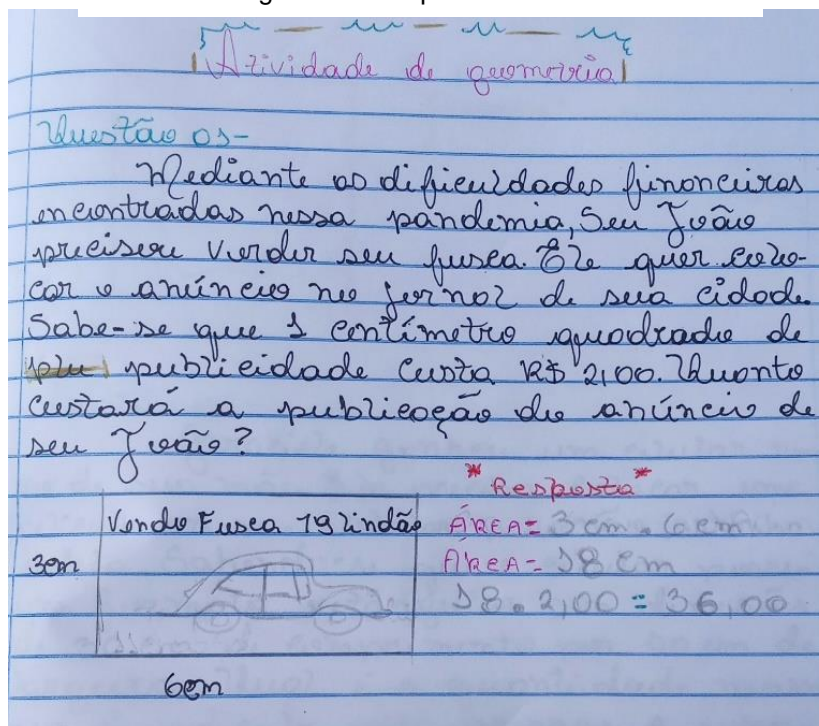 Atividade de geometria
Questão 01-
Mediante as dificuldades financeiras
encontradas nessa pandemia, Seu João
precisou vender seu fusca. Ele quer colo-
car o anúncio no jornal de sua cidade.
Sabe-se que 1 centímetro quadrado de
publicidade custa R$ 2,00. Quanto
custará a publicação do anúncio de
seu João?
*Resposta*
Vendo Fusca 79 lindão
ÁREA= 3 cm . 6 cm
3cm
ÁREA= 18 cm
18 . 2,00 = 36,00
6cm